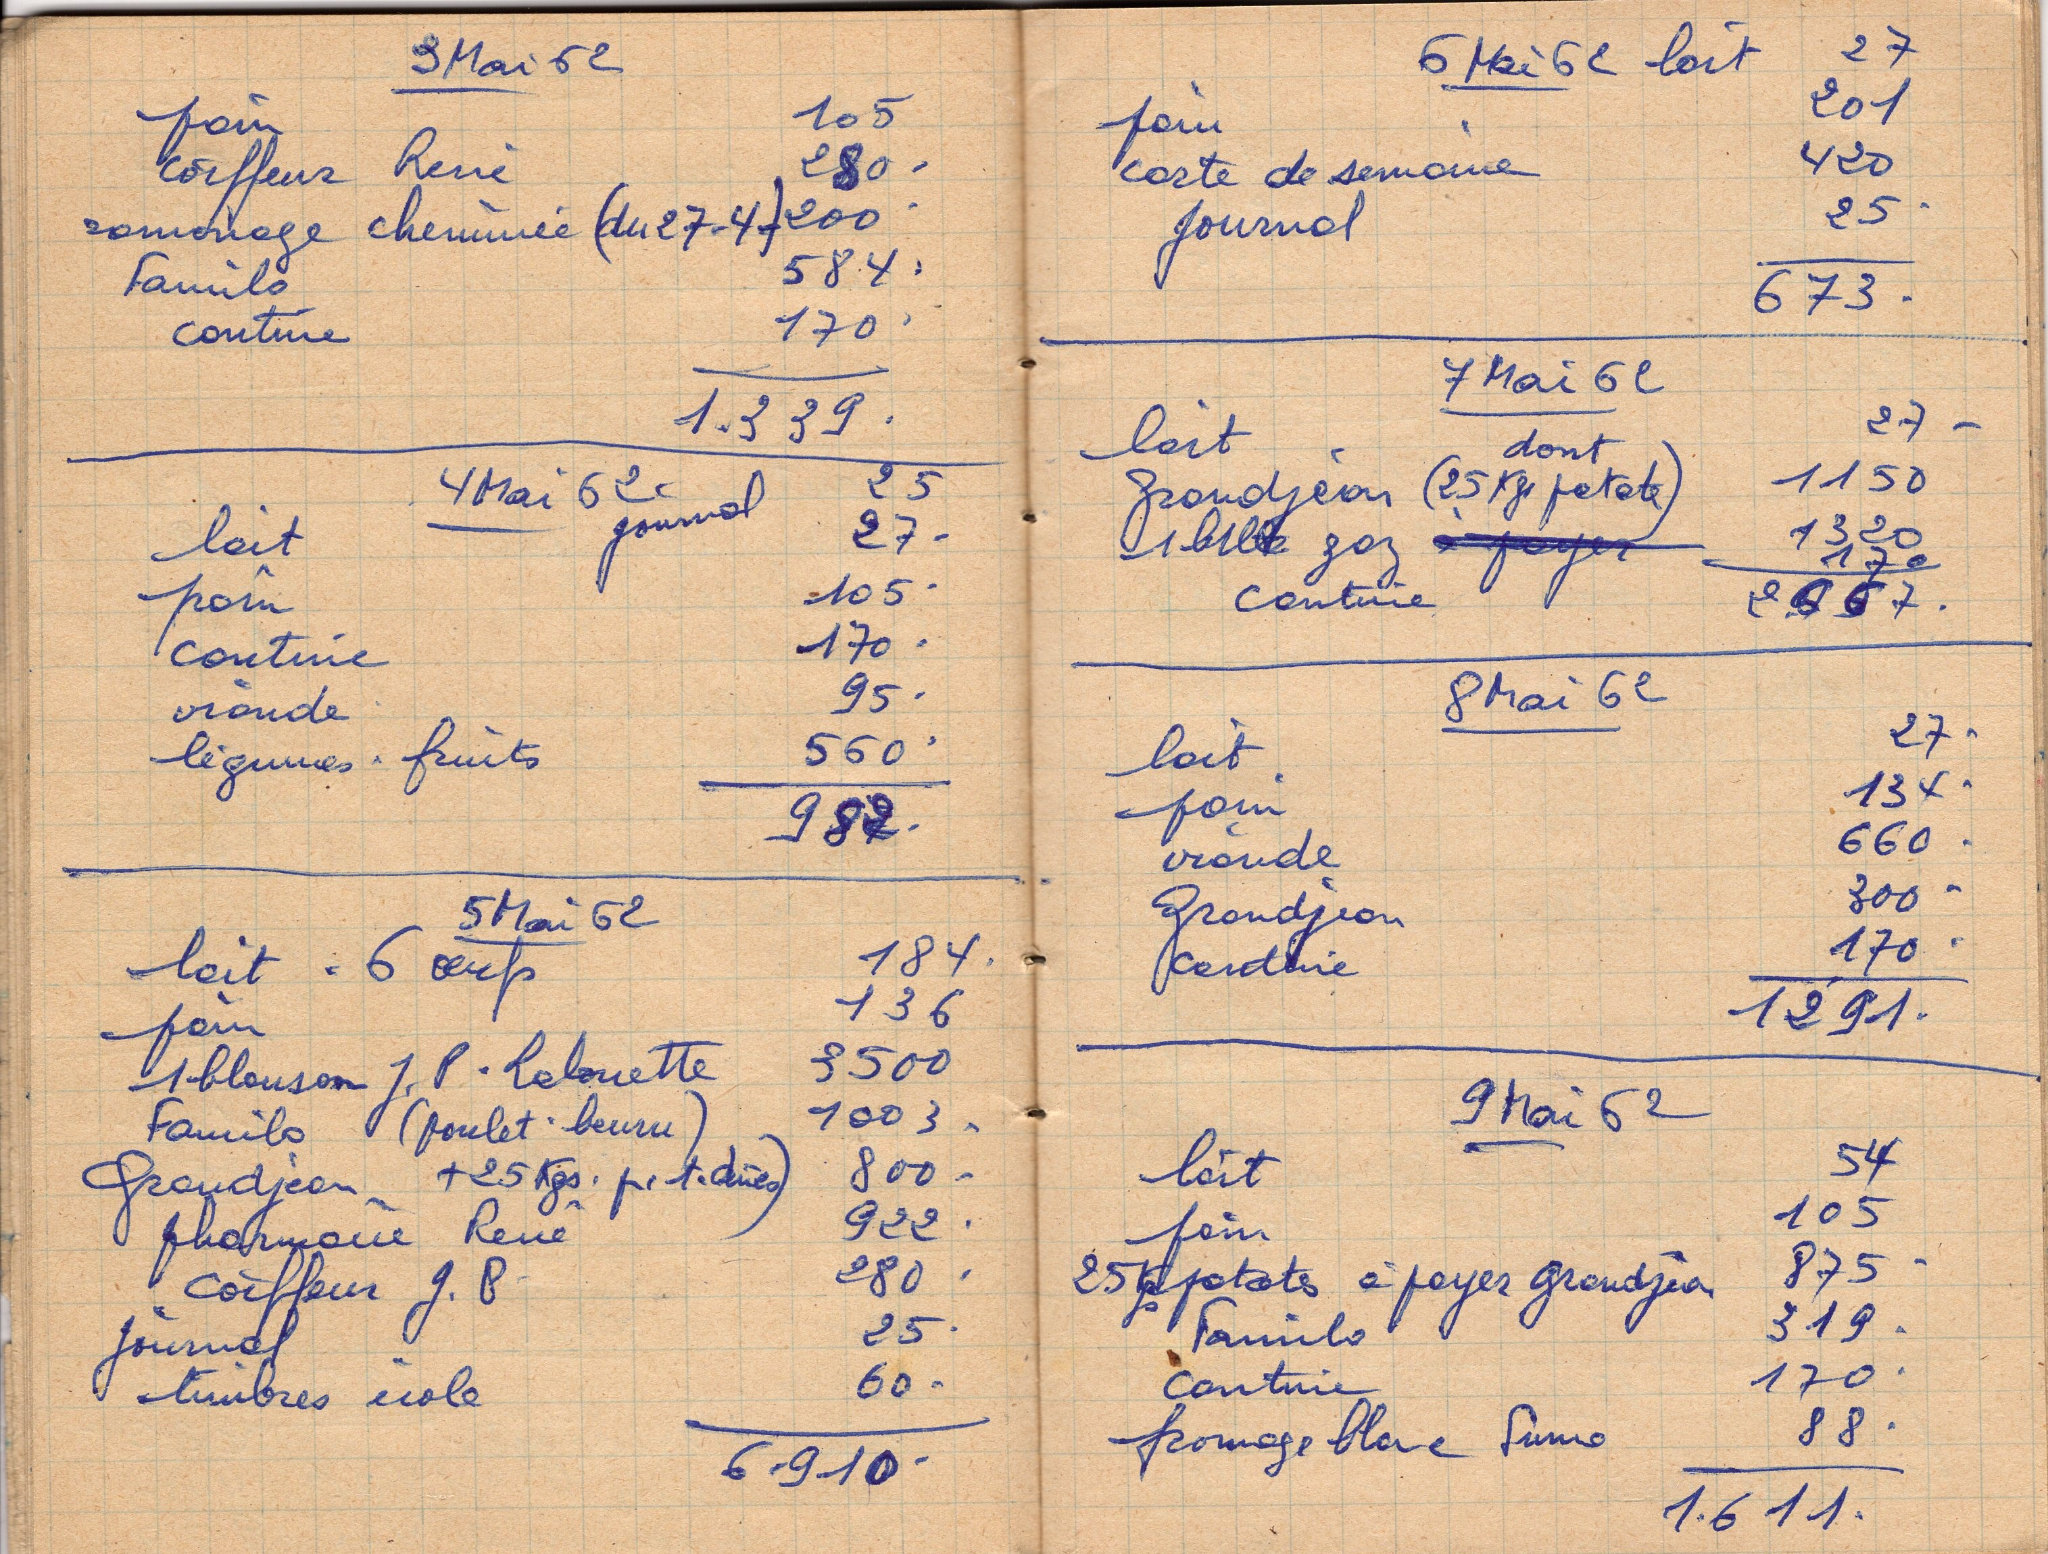 3 Mai 62
pain 105
coiffeur René 280.
ramonage cheminée (du 27-4-) 200.
Familo 584.
cantine 170.
1.339.
4 Mai 62. journal 25
lait 27-
pain 105.
cantine 170.
viande 95.
légumes. fruits 560.
982.
5 Mai 62
lait . 6 œufs 184.
pain 136
1 blouson J. P. Lalouette 3500
Familo (poulet. beurre) 1003.
Grandjean +25 Kgs. p. t. dues) 800-
pharmacie René 922.
coiffeur J. P. 280.
journal 25.
timbres école 60.
6.910.
6 Mai 62 lait 27
pain 201
carte de semaine 420
journal 25.
673.
7 Mai 62
lait 27-
dont
Grandjean (25 Kgs patate) 1150
1 blle gaz à payer 1320
cantine 170
2667.
8 Mai 62
lait 27.
pain 134.
viande 660.
Grandjean 300-
cantine 170.
1291.
9 Mai 62
lait 54
pain 105
25 kgs patates à payer Grandjean 875-
Familo 319.
cantine 170.
fromage blanc 88.
1.611.